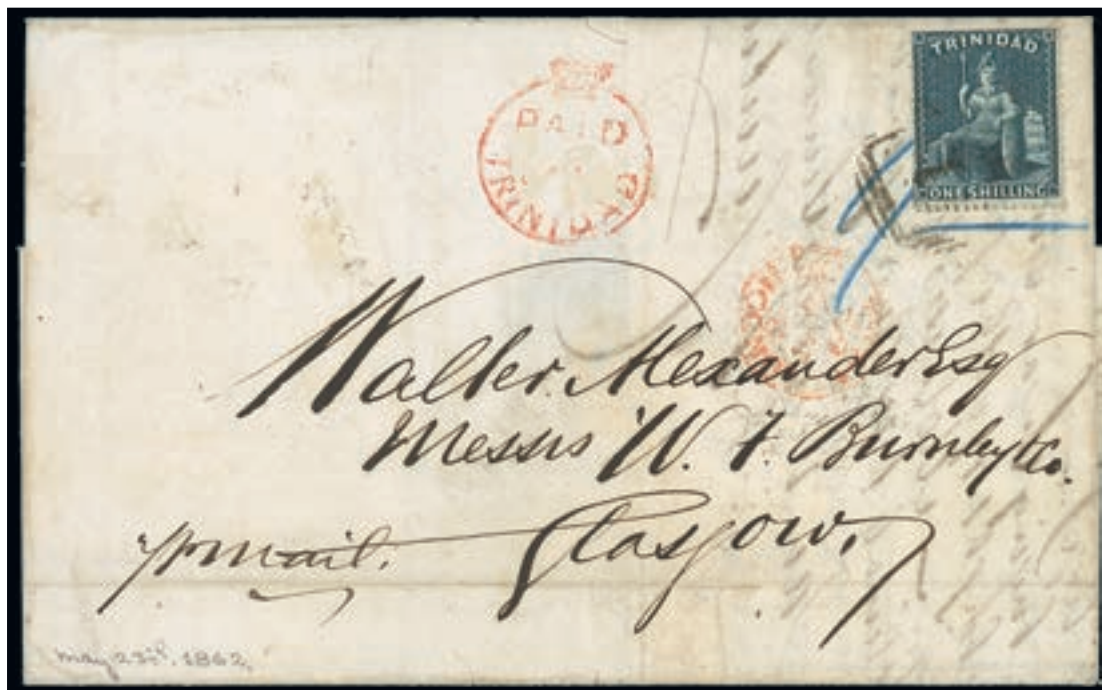 TRINIDAD
ONE SHILLING
PAID
TRINIDAD
Walter Alexander Esq
Messrs W. F. Burnley & Co.
Glasgow.
pr mail.
May 23rd, 1862,